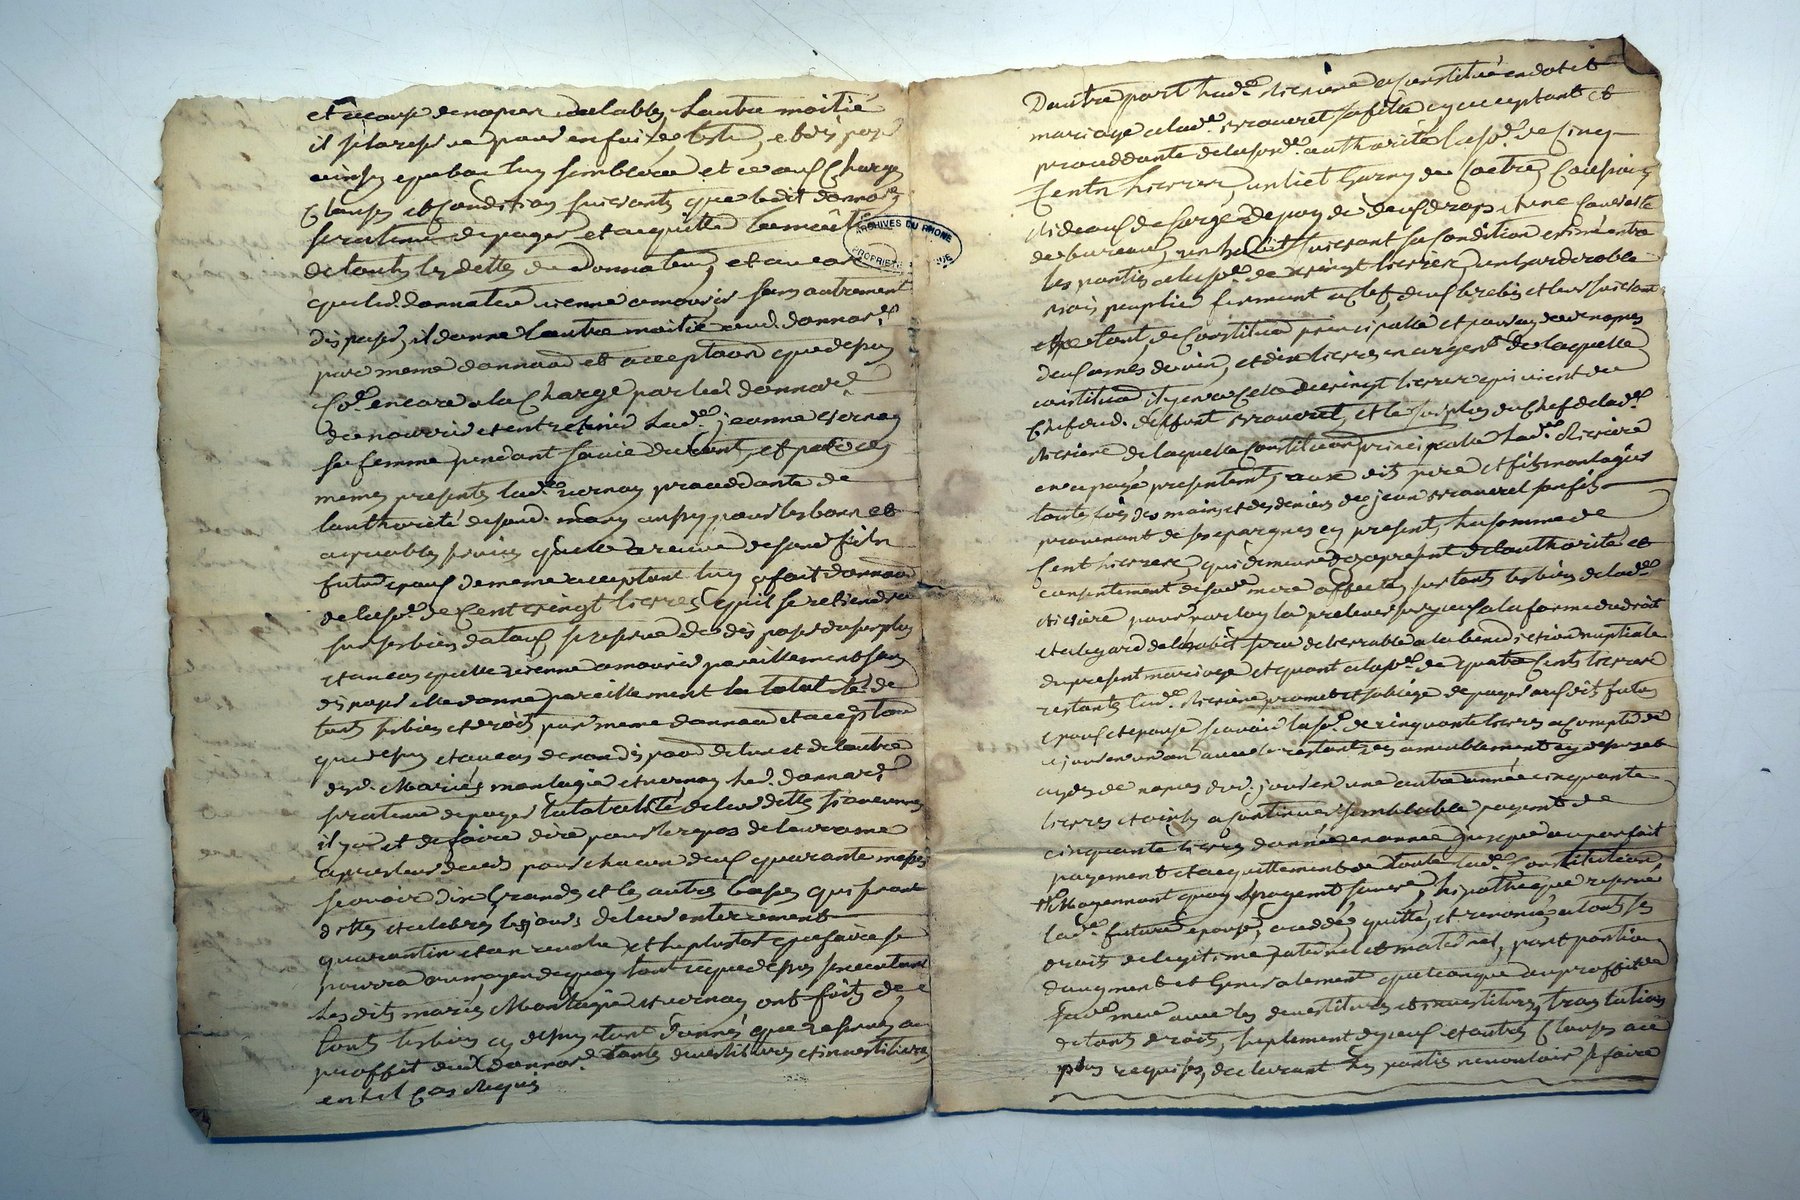 et a cause de nopces valables, Lautre moitié
il se la reserve pour en faire, teste, et dis poser
ainsy que bon luy semblera et ce aux Charges
Clauses et Conditions suivants que ledit donnore
sera tenu de payer et acquitter la moitié
de touts les dettes du donnateur, et au cas
que led. donnateur vienne a mourir sans autrement
disposer, il donne Lautre moitié aud. donnore
par meme donnaon et acceptaon que depuis
Co.e encore a la Charge par led donnore
de nourrir et entretenir lad.e jeanne vernay
sa femme pendant sa vie durant, et par ces
memes presents lad.e vernay proceddante de
lauthorité de sond. mary aussy pour les bons et
agreables services quelle a receu de sond fils
futur epoux de meme acceptant luy a fait donnaon
de la so.e de Cent vingt livres quil se retiendra
sur ses biens dotaux se reserve de disposer du surplus
et au cas quelle vienne a mourir pareillement sans
disposer elle donne pareillement la totalité de
touts ses biens et droits par meme donnaon et acceptaon
que depuis et au cas de non disposaon de lun et de lautre
desd. Mariés montagie et vernay led. donnore
sera tenu de payer la totalité de leurs dettes si aucunes
il y a et de faire dire pour le repos de leur ame
apres leur deceds pour chacun deux quarante messes
scavoir dix Grandes et les autres basses qui seront
dittes et celebrés les jours de leur enterrement
quarantin et an revolu et le plustot que faire se
pourra au moyen de quoy tout ce que depuis s'executant
Les dits mariés Montagie et vernay ont faits de
touts les biens cy depuis tant donnés que reservés au
proffit dud donnore toutes devestitures et investitures
en tel cas requis
D'autre part lad.e riviere a constitué en dot et
mariage a lad.e rrouvret sa fille cy acceptante et
proceddante de la sus.e authorité la so.e de Cinq
Cents livres, un lict Garny de Coetre, Coussin
rideaux de sarge de pays de deux draps, d'une couverte
de bureau, un habit suivant sa condition estimé entre
les parties a la so.e de vingt livres, un garderobbe
bois peuplier fermant a clef, deux brebis et leur suivant
et ce tant de Constituon principalle et pour ay de de nopces
deux anés de vin, et dix livres en argent de laquelle
constituon il y en a Celle de vingt livres qui vient du
Chef dud. deffunt rrouvret, et le surplus du Chef de lad.e
riviere de laquelle Constituon principalle lad.e riviere
en a payé presentement, aux dits pere et fils montagies
toutes fois des mains et des deniers de jean rrouvret son fils
provenant de ses epargnes cy present, la somme de
Cent livres qui demeure des a present de lauthorité et
consentement de sad.e mere affectés sur touts les biens de lad.e
riviere pour par luy la prelever sur yceux a la forme du droit
et a legard de l'habit sera delivrable a la benediction nuptiale
du present mariage et quant a la so.e de quatre Cents livres
restants lad.e riviere promet et soblige de payer auxdits futur
epoux et epouse scavoir la so.e de cinquante livres a compte de
ce jourd en un an avec le restant des ameublements cy depuis et
ayde de nopces dud. jour en une autre année cinquante
livres et ainsy a continuer semblable payemt de
cinquante livres d'année en année jusques au parfait
payement et acquittement de toute lad.e Constitution
Moyennant quoy le payemt sauve, hipotheque reservé
lad.e future epouse, a ceddé, quitté, et renoncé a touts ses
droits de legitime paternel et maternel, part portion
daugment et Generalement quelconque au proffit de
sad.e mere avec les devestitures et investitures, translations
de touts droits, suplement dyceux et autres Clauses a ce
plus requises, declarant les parties ne vouloir se faire